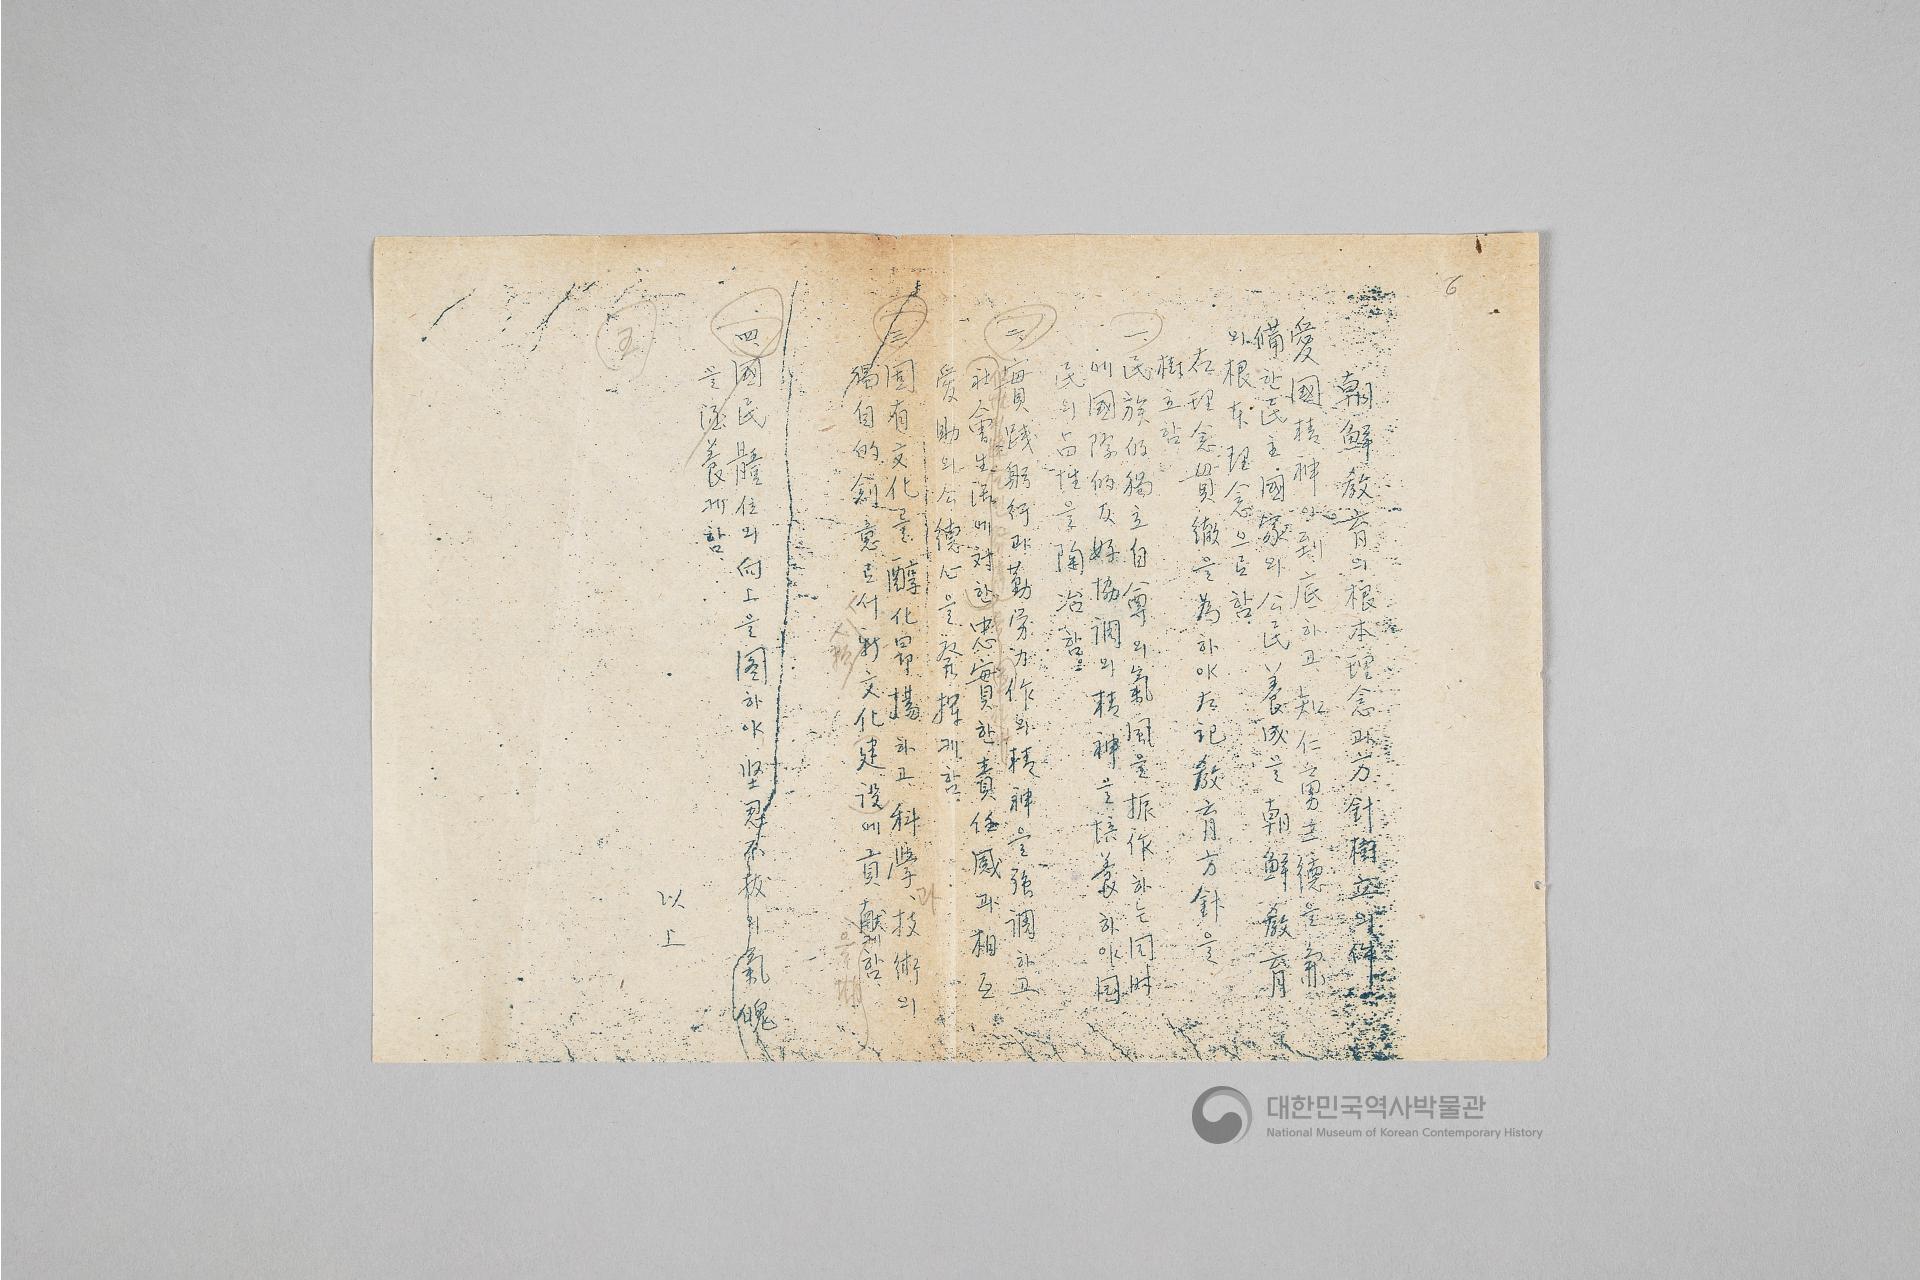 6
朝鮮敎育의根本理念과方針樹立의件
愛國精神에到底하고知仁勇三德을兼
備한民主國家의公民養成을朝鮮敎育
의根本理念으로함
右理念貫徹을爲하야左記敎育方針을
樹立함
一、民族的獨立自尊의氣風을振作하는同時
에國際的友好協調의精神을培養하야國
民의品性을陶冶함
二、實踐躬行과勤勞力作의精神을强調하고
社會生活에對한忠實한責任感과相互
愛助의公德心을發揮케함
三、固有文化를醇化昂揚하고科學、技術의
과
獨自的創意로서新文化建設에貢献케함
人類
四、國民體位의向上을圖하야堅忍不拔의氣魄
을涵養케함
五
以上
대한민국역사박물관
National Museum of Korean Contemporary History